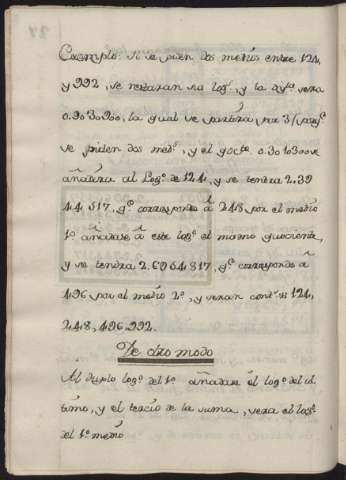 Exemplo. Si se piden dos medios entre 124,
y 992, se restaran sus logs. y la dyfa. sera
0.9030900, la qual se partira por 3 (porqe.
se piden dos meds. y el gocte. 0.3010300 se
añadira al Logo. de 124, y se tendra 2.39
44517, qe. corresponde â 248 por el medio
1º añadase â este logo. el mismo quociente,
y se tendra 2.6954817, qe. corresponde â
496 por el medio 2º, y seran contos. 124,
248, 496, 992.
De otro modo
Al duplo logo. del 1º añadase el logo. del ul
timo, y el tercio de la suma, sera el logo.
del 1º medio